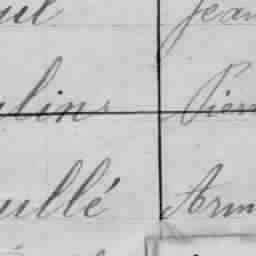 ul Jean
ulins Pierr
ullé Arm